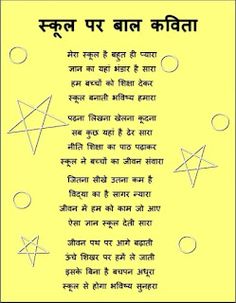 स्कूल पर बाल कविता
मेरा स्कूल है बहुत ही प्यारा
ज्ञान का यहां भंडार है सारा
हम बच्चों को शिक्षा देकर
स्कूल बनाती भविष्य हमारा
पढ़ना लिखना खेलना कूदना
सब कुछ यहां है ढेर सारा
नीति शिक्षा का पाठ पढ़ाकर
स्कूल ने बच्चों का जीवन संवारा
जितना सीखे उतना कम है
विद्या का है सागर न्यारा
जीवन में हम को काम जो आए
ऐसा ज्ञान स्कूल देती सारा
जीवन पथ पर आगे बढ़ाती
ऊंचे शिखर पर हमें ले जाती
इसके बिना है बचपन अधूरा
स्कूल से होगा भविष्य सुनहरा